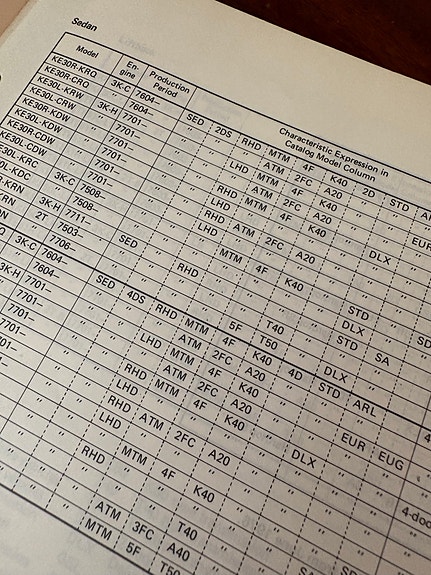 Sedan
Model En- gine Production Period Characteristic Expression in Catalog Model Column
KE30R-KRQ 3K-C 7604– SED 2DS RHD MTM 4F K40 2D STD ARL
KE30R-CRQ " 7604– " " " ATM 2FC A20 " " "
KE30L-KRW 3K-H 7701– " " LHD MTM 4F K40 " " EUR
KE30L-CRW " 7701– " " " ATM 2FC A20 " " "
KE30R-KDW " 7701– " " RHD MTM 4F K40 " DLX "
KE30R-CDW " 7701– " " " ATM 2FC A20 " " "
KE30L-KDW " 7701– " " LHD MTM 4F K40 " " "
KE30L-CDW " 7701– " " " ATM 2FC A20 " " "
KE30L-KRC 3K-C 7508– " " " MTM 4F K40 " STD
L-KDC " 7508– " " " " " " " DLX
-KRN 3K-H 7711– SED " RHD " " " " STD SA
RN 2T 7503– " " " " 5F T40 " "
N " 7706– " " " " " T50 " DLX
Q 3K-C 7604– SED 4DS RHD MTM 4F K40 4D STD ARL
" 7604– " " " ATM 2FC A20 " " "
3K-H 7701– " " LHD MTM 4F K40 " " EUR EUG
" 7701– " " " ATM 2FC A20 " " "
" 7701– " " RHD MTM 4F K40 " DLX "
7701– " " " ATM 2FC A20 " " "
7701– " " LHD MTM 4F K40 " " " 4-doo
" " " ATM 2FC A20 " "
" " RHD MTM 4F K40 " "
" " " " T40
ATM 3FC A40
MTM 5F T50